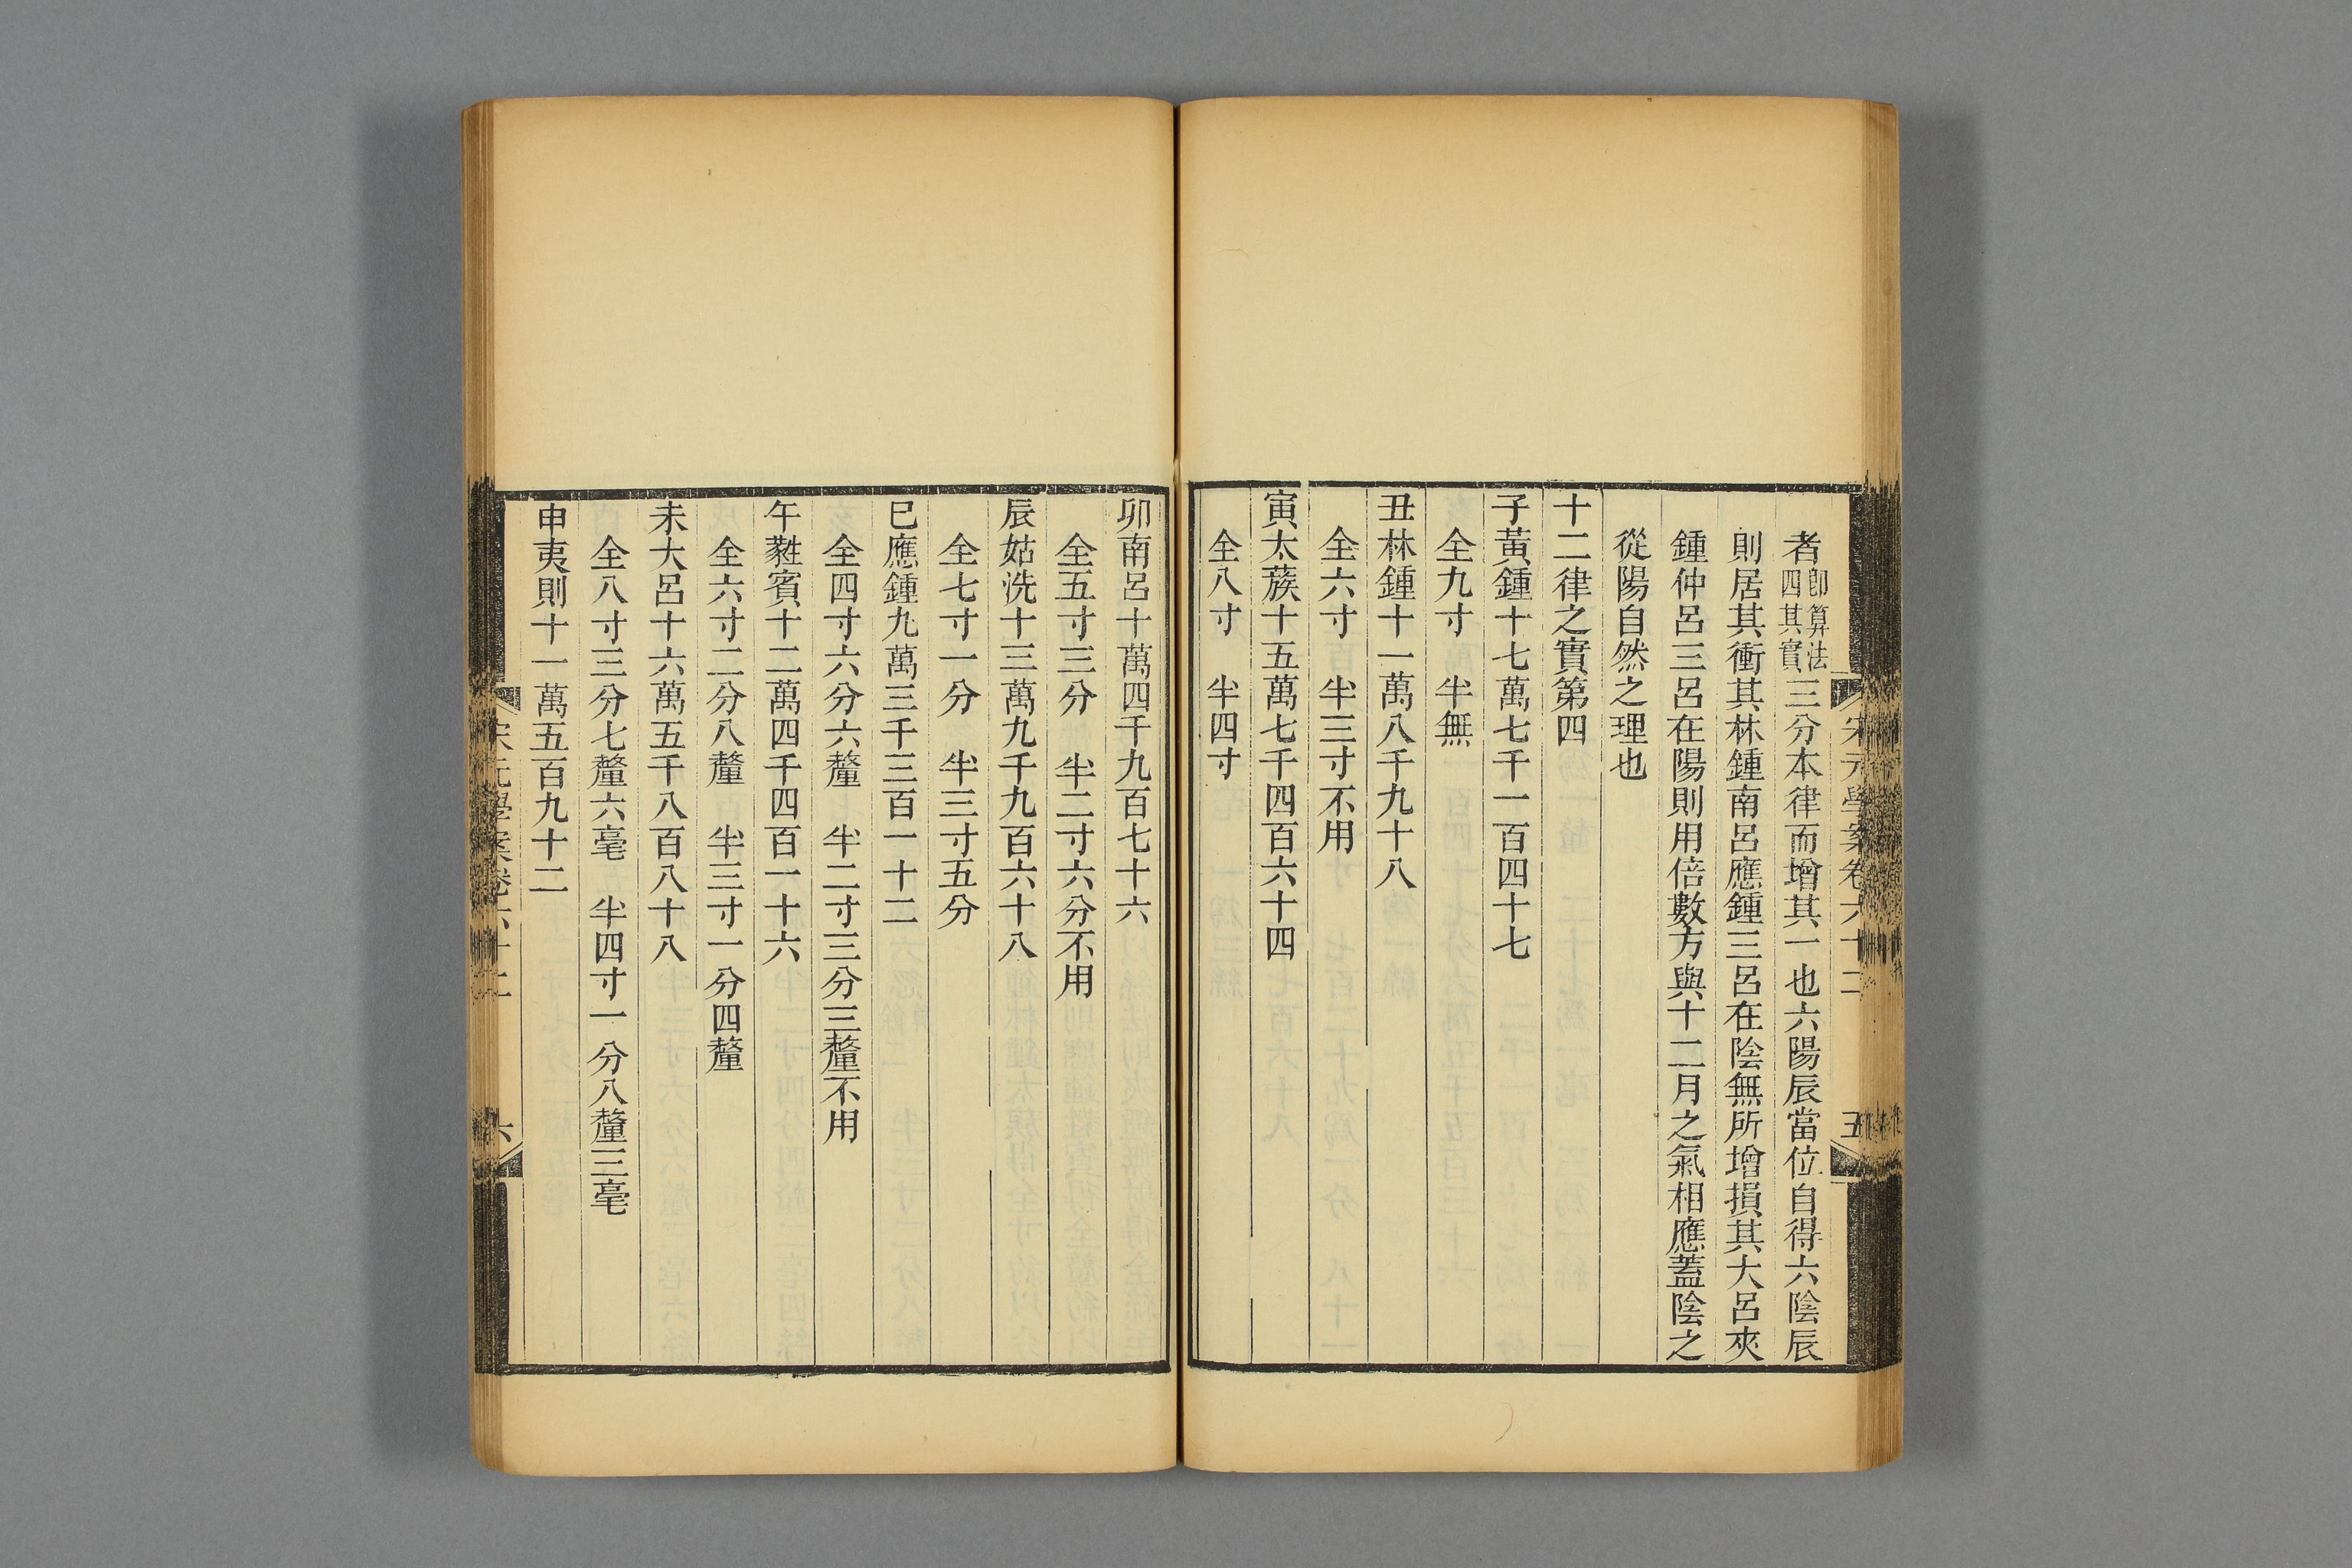 宋元學案卷六十二
五
者即算法四其實三分本律而增其一也六陽辰當位自得六陰辰
則居其衝其林鍾南呂應鍾三呂在陰無所增損其大呂夾
鍾仲呂三呂在陽則用倍數方與十二月之氣相應蓋陰之
從陽自然之理也
十二律之實第四
子黃鍾十七萬七千一百四十七
全九寸　半無
丑林鍾十一萬八千九十八
全六寸　半三寸不用
寅太蔟十五萬七千四百六十四
全八寸　半四寸
卯南呂十萬四千九百七十六
全五寸三分　半二寸六分不用
辰姑洗十三萬九千九百六十八
全七寸一分　半三寸五分
巳應鍾九萬三千三百一十二
全四寸六分六釐　半二寸三分三釐不用
午蕤賓十二萬四千四百一十六
全六寸二分八釐　半三寸一分四釐
未大呂十六萬五千八百八十八
全八寸三分七釐六毫　半四寸一分八釐三毫
申夷則十一萬五百九十二
宋元學案卷六十二
六